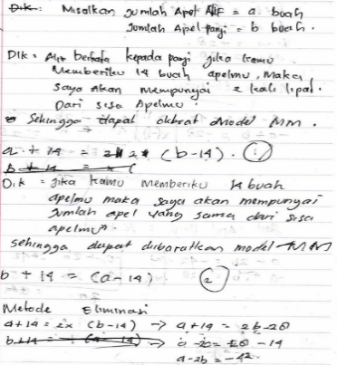 Misalkan Jumlah Apel Alif = a buah
Jumlah Apel panji = b buah.
Dik : Alif berkata kepada panji jika kamu
Memberiku 14 buah apelmu, Maka
Saya akan mempunyai 2 kali lipat
Dari sisa Apelmu.
Sehingga dapat dibuat Model MM.
a + 14 = 2 x (b-14). 1
Dik = jika kamu memberiku 14 buah
apelmu maka saya akan mempunyai
Jumlah apel yang sama dari sisa
apelmu".
sehingga dapat dibaratkan model MM
b + 14 = (a-14) 2
Metode Eliminasi
a+14 = 2x (b-14) → a+14 = 2b-28
→ a-2b = -28 -14
a-2b = -42